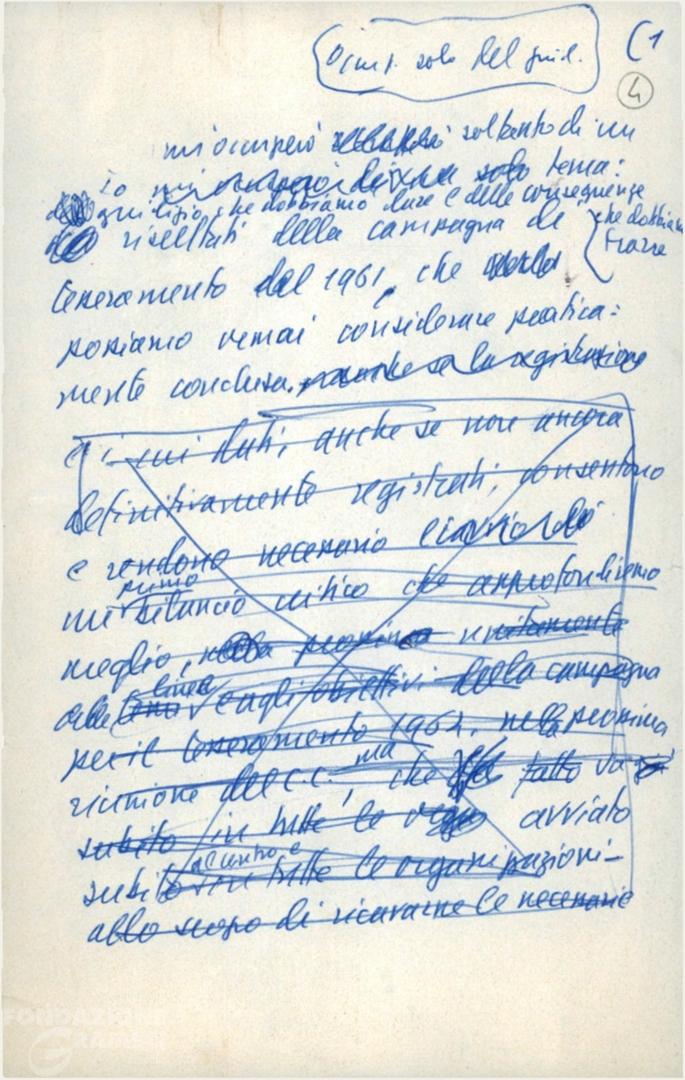 solo del
(1
4
mi occuperò soltanto di un
Io mi occuperò di un solo tema:
giudizio che dobbiamo dare e delle conseguenze
che dobbiamo
trarre
risultati della campagna di
tesseramento del 1961, che
possiamo ormai considerare pratica=
mente conclusa. la registrazione
e i cui dati, anche se non ancora
definitivamente registrati, consentono
e rendono necessario
primo
un bilancio critico che approfondiremo
meglio, nella prossima unitamente
linee
alle e agli obiettivi della campagna
per il tesseramento 1962, nella prossima
riunione del C.C., ma che fatto va
subito in tutte le avviato
al centro e
subito in tutte le organizzazioni
allo scopo di ricavarne le necessarie
FONDAZIONE
GRAMSCI